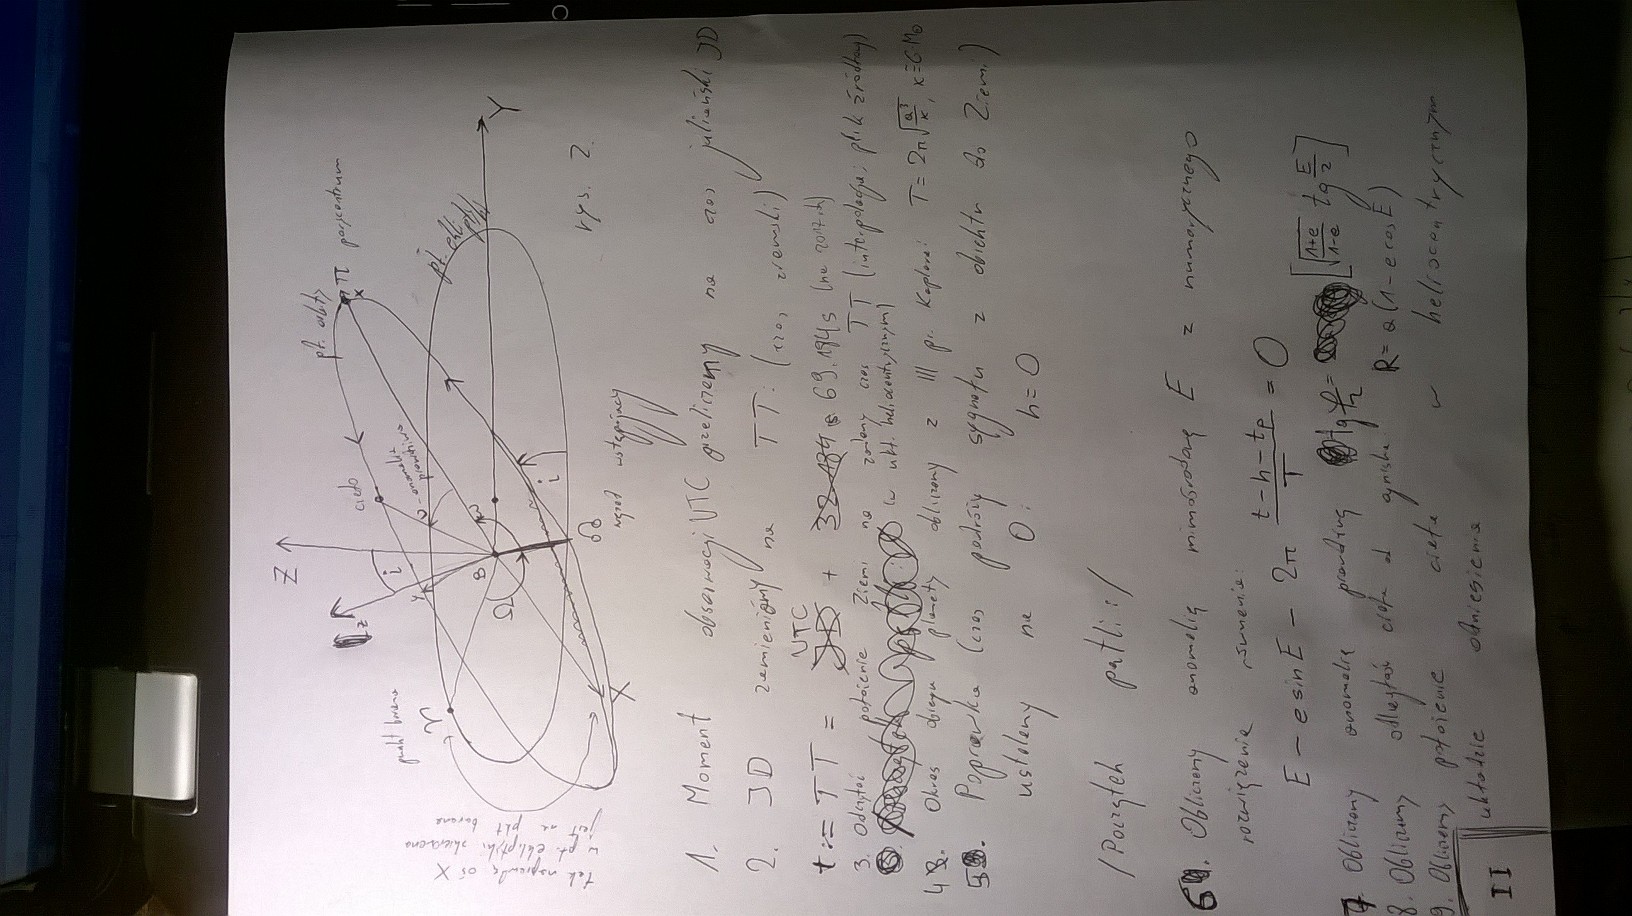 Z
pł. orbity
π perycentrum
x
z
i
ciało
punkt barana
♈
y
υ - anomalia prawdziwa
pł. ekliptyki
B
ω
Ω
Y
i
tak naprawdę oś X
w pł. ekliptyki skierowana
jest na pkt barana
X
☊
węzeł wstępujący
rys. 2.
1. Moment obserwacji UTC przeliczamy na czas juliański JD
2. JD zamieniamy na TT: (czas ziemski)
t := TT = UTC + 69.184s (na 2017 r.)
3. Odczytać położenie Ziemi na zadany czas TT (interpolacja; plik źródłowy)
(w ukł. heliocentrycznym)
4. Okres obiegu planety obliczamy z III pr. Keplera: T = 2π√(a³/κ), κ ≡ G M☉
5. Poprawka (czas podróży sygnału z obiektu do Ziemi)
ustalamy na 0: h = 0
/Początek pętli:/
6. Obliczamy anomalię mimośrodową E z numerycznego
rozwiązania równania:
E - e sin E - 2π (t-h-tₚ)/T = 0
7. Obliczamy anomalię prawdziwą tg φ/2 = [√((1+e)/(1-e)) tg E/2]
8. Obliczamy odległość ciała od ogniska: R = a(1 - e cos E)
9. Obliczamy położenie ciała w heliocentrycznym
układzie odniesienia
II